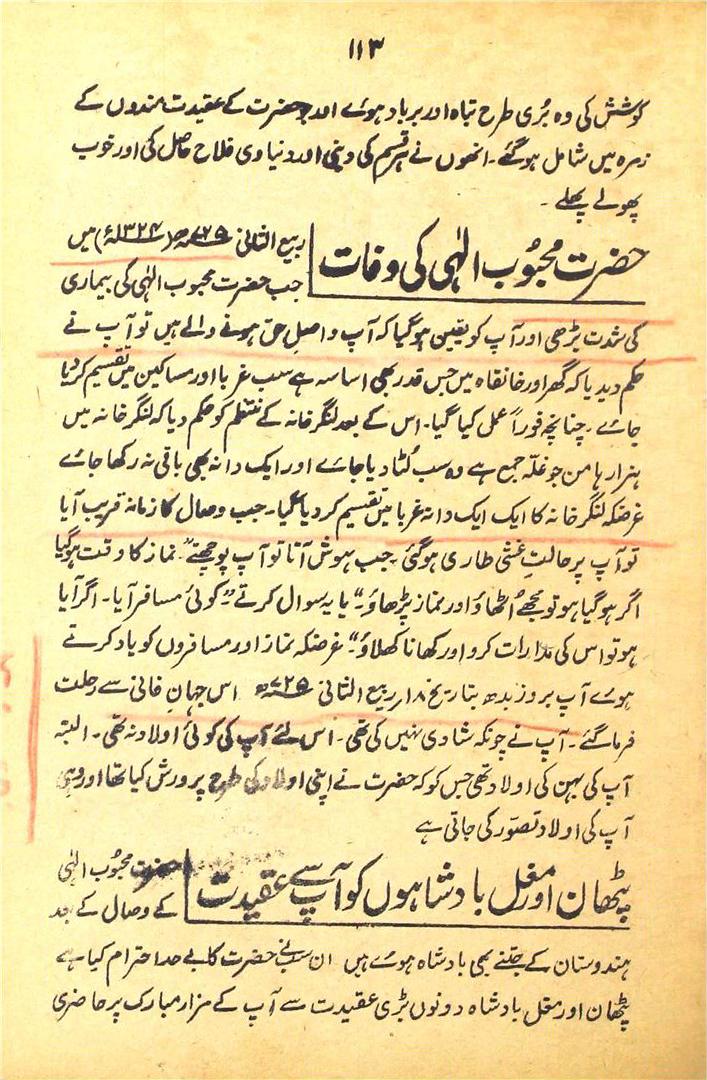 ۱۱۳
کوشش کی وہ بُری طرح تباہ اور برباد ہوئے اور حضرت کے عقیدت مندوں کے
زمرہ میں شامل ہوگئے۔ انھوں نے ہر قسم کی دینی اور دنیاوی فلاح حاصل کی اور خوب
پھولے پھلے۔
حضرت محبُوب الٰہی کی وفات
ربیع الثانی ۷۲۵ھ (۱۳۲۴ء) میں
جب حضرت محبوب الٰہی کی بیماری
کی شدت بڑھی اور آپ کو یقین ہوگیا کہ آپ واصلِ حق ہونے والے ہیں تو آپ نے
حکم دیدیا کہ گھر اور خانقاہ میں جس قدر بھی اساسہ ہے سب غربا اور مساکین میں تقسیم کر دیا
جائے۔ چنانچہ فوراً عمل کیا گیا۔ اس کے بعد لنگر خانہ کے منتظم کو حکم دیا کہ لنگر خانہ میں
ہزارہا من جو غلّہ جمع ہے وہ سب لُٹا دیا جائے اور ایک دانہ بھی باقی نہ رکھا جائے
غرضکہ لنگر خانہ کا ایک ایک دانہ غربا میں تقسیم کر دیا گیا۔ جب وصال کا زمانہ قریب آیا
تو آپ پر حالتِ غشی طاری ہوگئی جب ہوش آتا تو آپ پوچھتے "نماز کا وقت ہوگیا
اگر ہوگیا ہو تو مجھے اُٹھاؤ اور نماز پڑھاؤ۔" یا یہ سوال کرتے "کوئی مسافر آیا۔ اگر آیا
ہو تو اس کی مدارات کرو اور کھانا کھلاؤ" غرضکہ نماز اور مسافروں کو یاد کرتے
ہوئے آپ بروز بدھ بتاریخ ۱۸ ربیع الثانی ۷۲۵ھ اس جہانِ فانی سے رحلت
فرما گئے۔ آپ نے چونکہ شادی نہیں کی تھی۔ اس لئے آپ کی کوئی اولاد نہ تھی۔ البتہ
آپ کی بہن کی اولاد تھی جس کو کہ حضرت نے اپنی اولاد کی طرح پرورش کیا تھا اور وہی
آپ کی اولاد تصوّر کی جاتی ہے
پٹھان اور مغل بادشاہوں کو آپ سے عقیدت
حضرت محبُوب الٰہی
کے وصال کے بعد
ہندوستان کے جتنے بھی بادشاہ ہوئے ہیں ان سب نے حضرت کا بے حد احترام کیا ہے
پٹھان اور مغل بادشاہ دونوں بڑی عقیدت سے آپ کے مزار مبارک پر حاضری